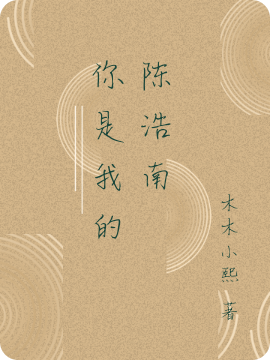 你是我的
陈浩南
木木小熙 著